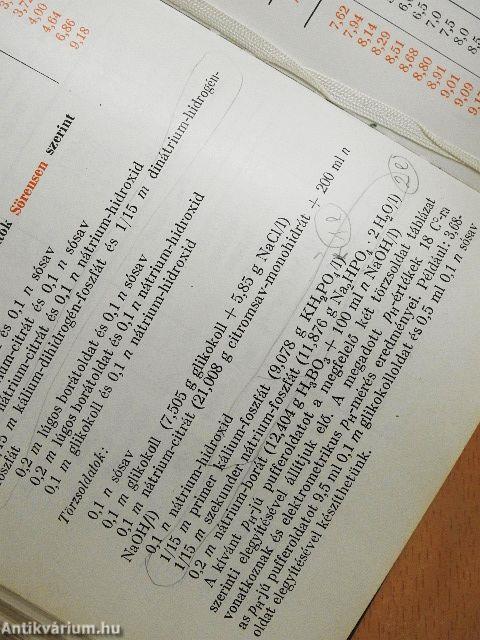 3,72
4,00
4,64
6,86
9,18
7,62
7,94
8,14
8,29
8,51
8,68
8,80
8,91
9,01
9,09
9,17
6,5
7,0
7,5
8,0
8,5
Sörensen szerint
és 0,1 n sósav
citrát és 0,1 n sósav
nátrium-citrát és 0,1 n nátrium-hidroxid
m kálium-dihidrogén-foszfát és 1/15 m dinátrium-hidrogén-
foszfát
0,2 m lúgos borátoldat és 0,1 n sósav
0,2 m lúgos borátoldat és 0,1 n nátrium-hidroxid
0,1 m glikokoll és 0,1 n nátrium-hidroxid
Törzsoldatok:
0,1 n sósav
0,1 m glikokoll (7,505 g glikokoll + 5,85 g NaCl/l)
0,1 m nátrium-citrát (21,008 g citromsav-monohidrát + 200 ml n
NaOH/l)
0,1 n nátrium-hidroxid
1/15 m primer kálium-foszfát (9,078 g KH₂PO₄/l)
1/15 m szekunder nátrium-foszfát (11,876 g Na₂HPO₄ · 2 H₂O/l)
0,2 m nátrium-borát (12,404 g H₃BO₃ + 100 ml n NaOH/l)
A kívánt pH-jú pufferoldatot a megfelelő két törzsoldat táblázat
szerinti elegyítésével állítjuk elő. A megadott pH-értékek 18 C°-ra
vonatkoznak és elektrometrikus pH-mérés eredményei. Például: 8,68-
as pH-jú pufferoldatot 9,5 ml 0,1 m glikokolloldat és 0,5 ml 0,1 n sósav
oldat elegyítésével készíthetünk.
Antikvárium.hu